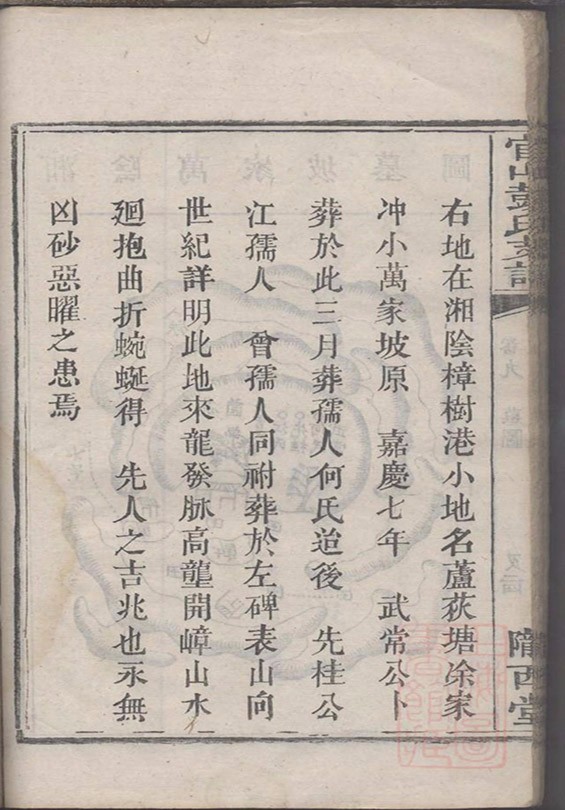 官山彭氏支譜
隴西堂
右地在湘陰樟樹港小地名蘆荻塘凃家
冲小萬家坡原　嘉慶七年　武常公卜
葬於此三月葬孺人何氏迨後　先桂公
江孺人　曾孺人同祔葬於左碑表山向
世紀詳明此地來龍發脉高壟開嶂山水
廻抱曲折蜿蜒得　先人之吉兆也永無
凶砂惡曜之患焉